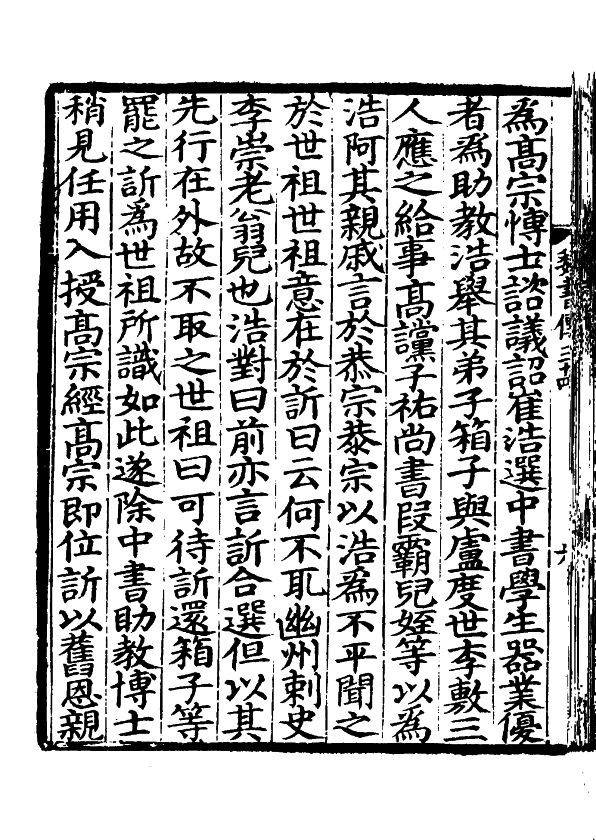 為髙宗愽士諮議詔崔浩選中書學生器業優
者為助教浩舉其弟子箱子與盧度世李敷三
人應之給事髙讜子祐尚書段霸兒姪等以為
浩阿其親戚言於恭宗恭宗以浩為不平聞之
於世祖世祖意在於訢曰云何不取幽州刺史
李崇老翁兒也浩對曰前亦言訢合選但以其
先行在外故不取之世祖曰可待訢還箱子等
罷之訢為世祖所識如此遂除中書助教博士
稍見任用入授髙宗經髙宗即位訢以舊恩親
魏書傳三十四
六